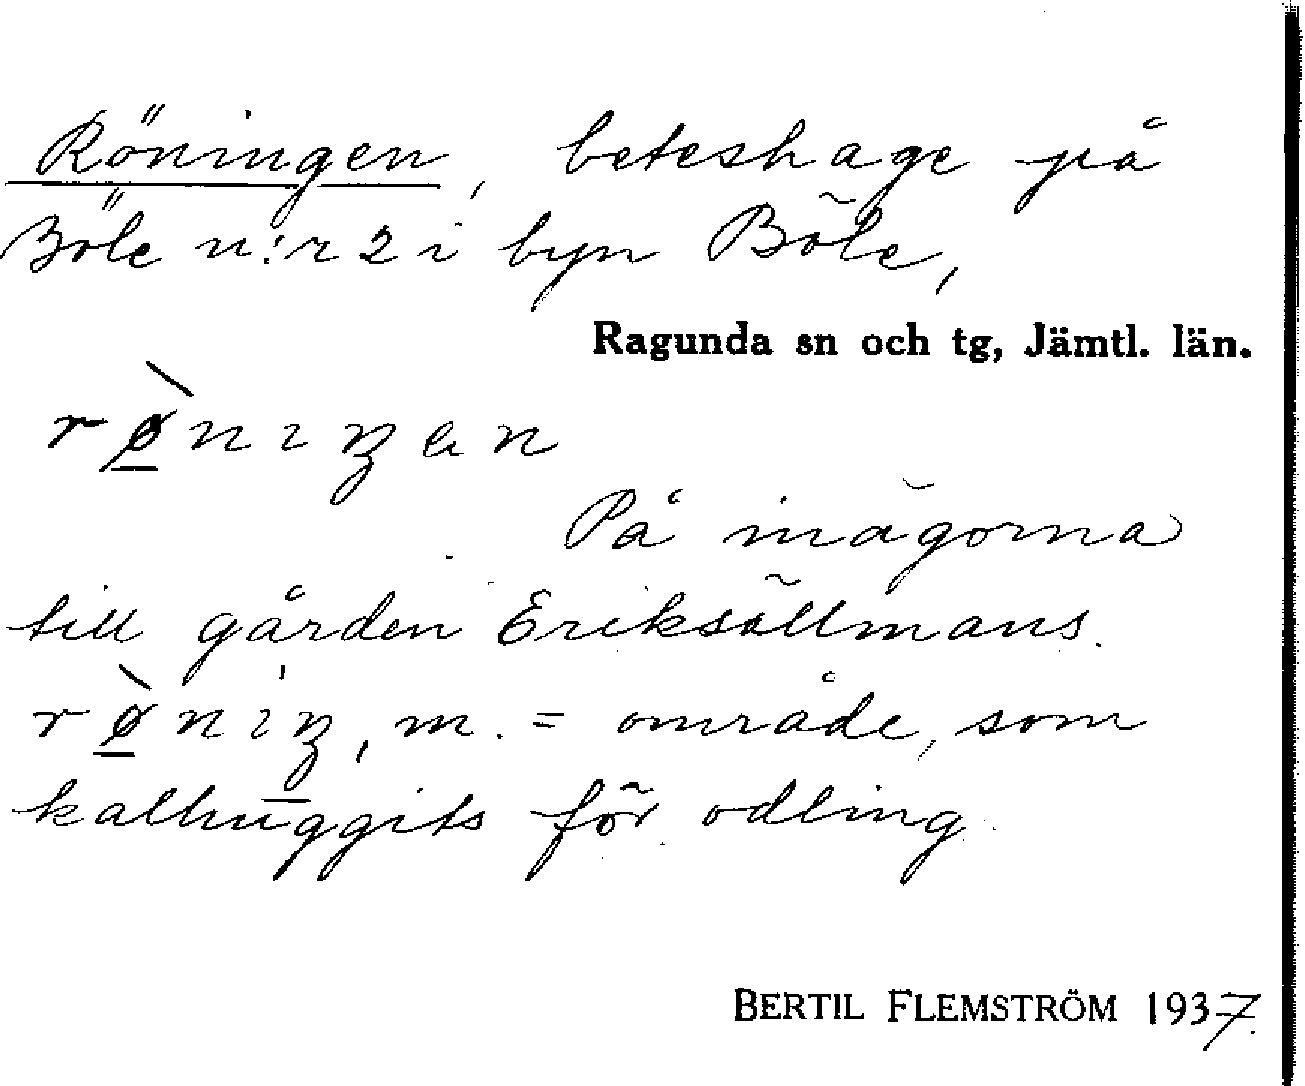 Röningen, beteshage på
Böle n:r 2 i byn Böle,
Ragunda sn och tg, Jämtl. län.
rø̀niŋen
På inägorna
till gården Eriksöllmans.
rø̀niŋ, m. = område, som
kalhuggits för odling.
BERTIL FLEMSTRÖM 1937.